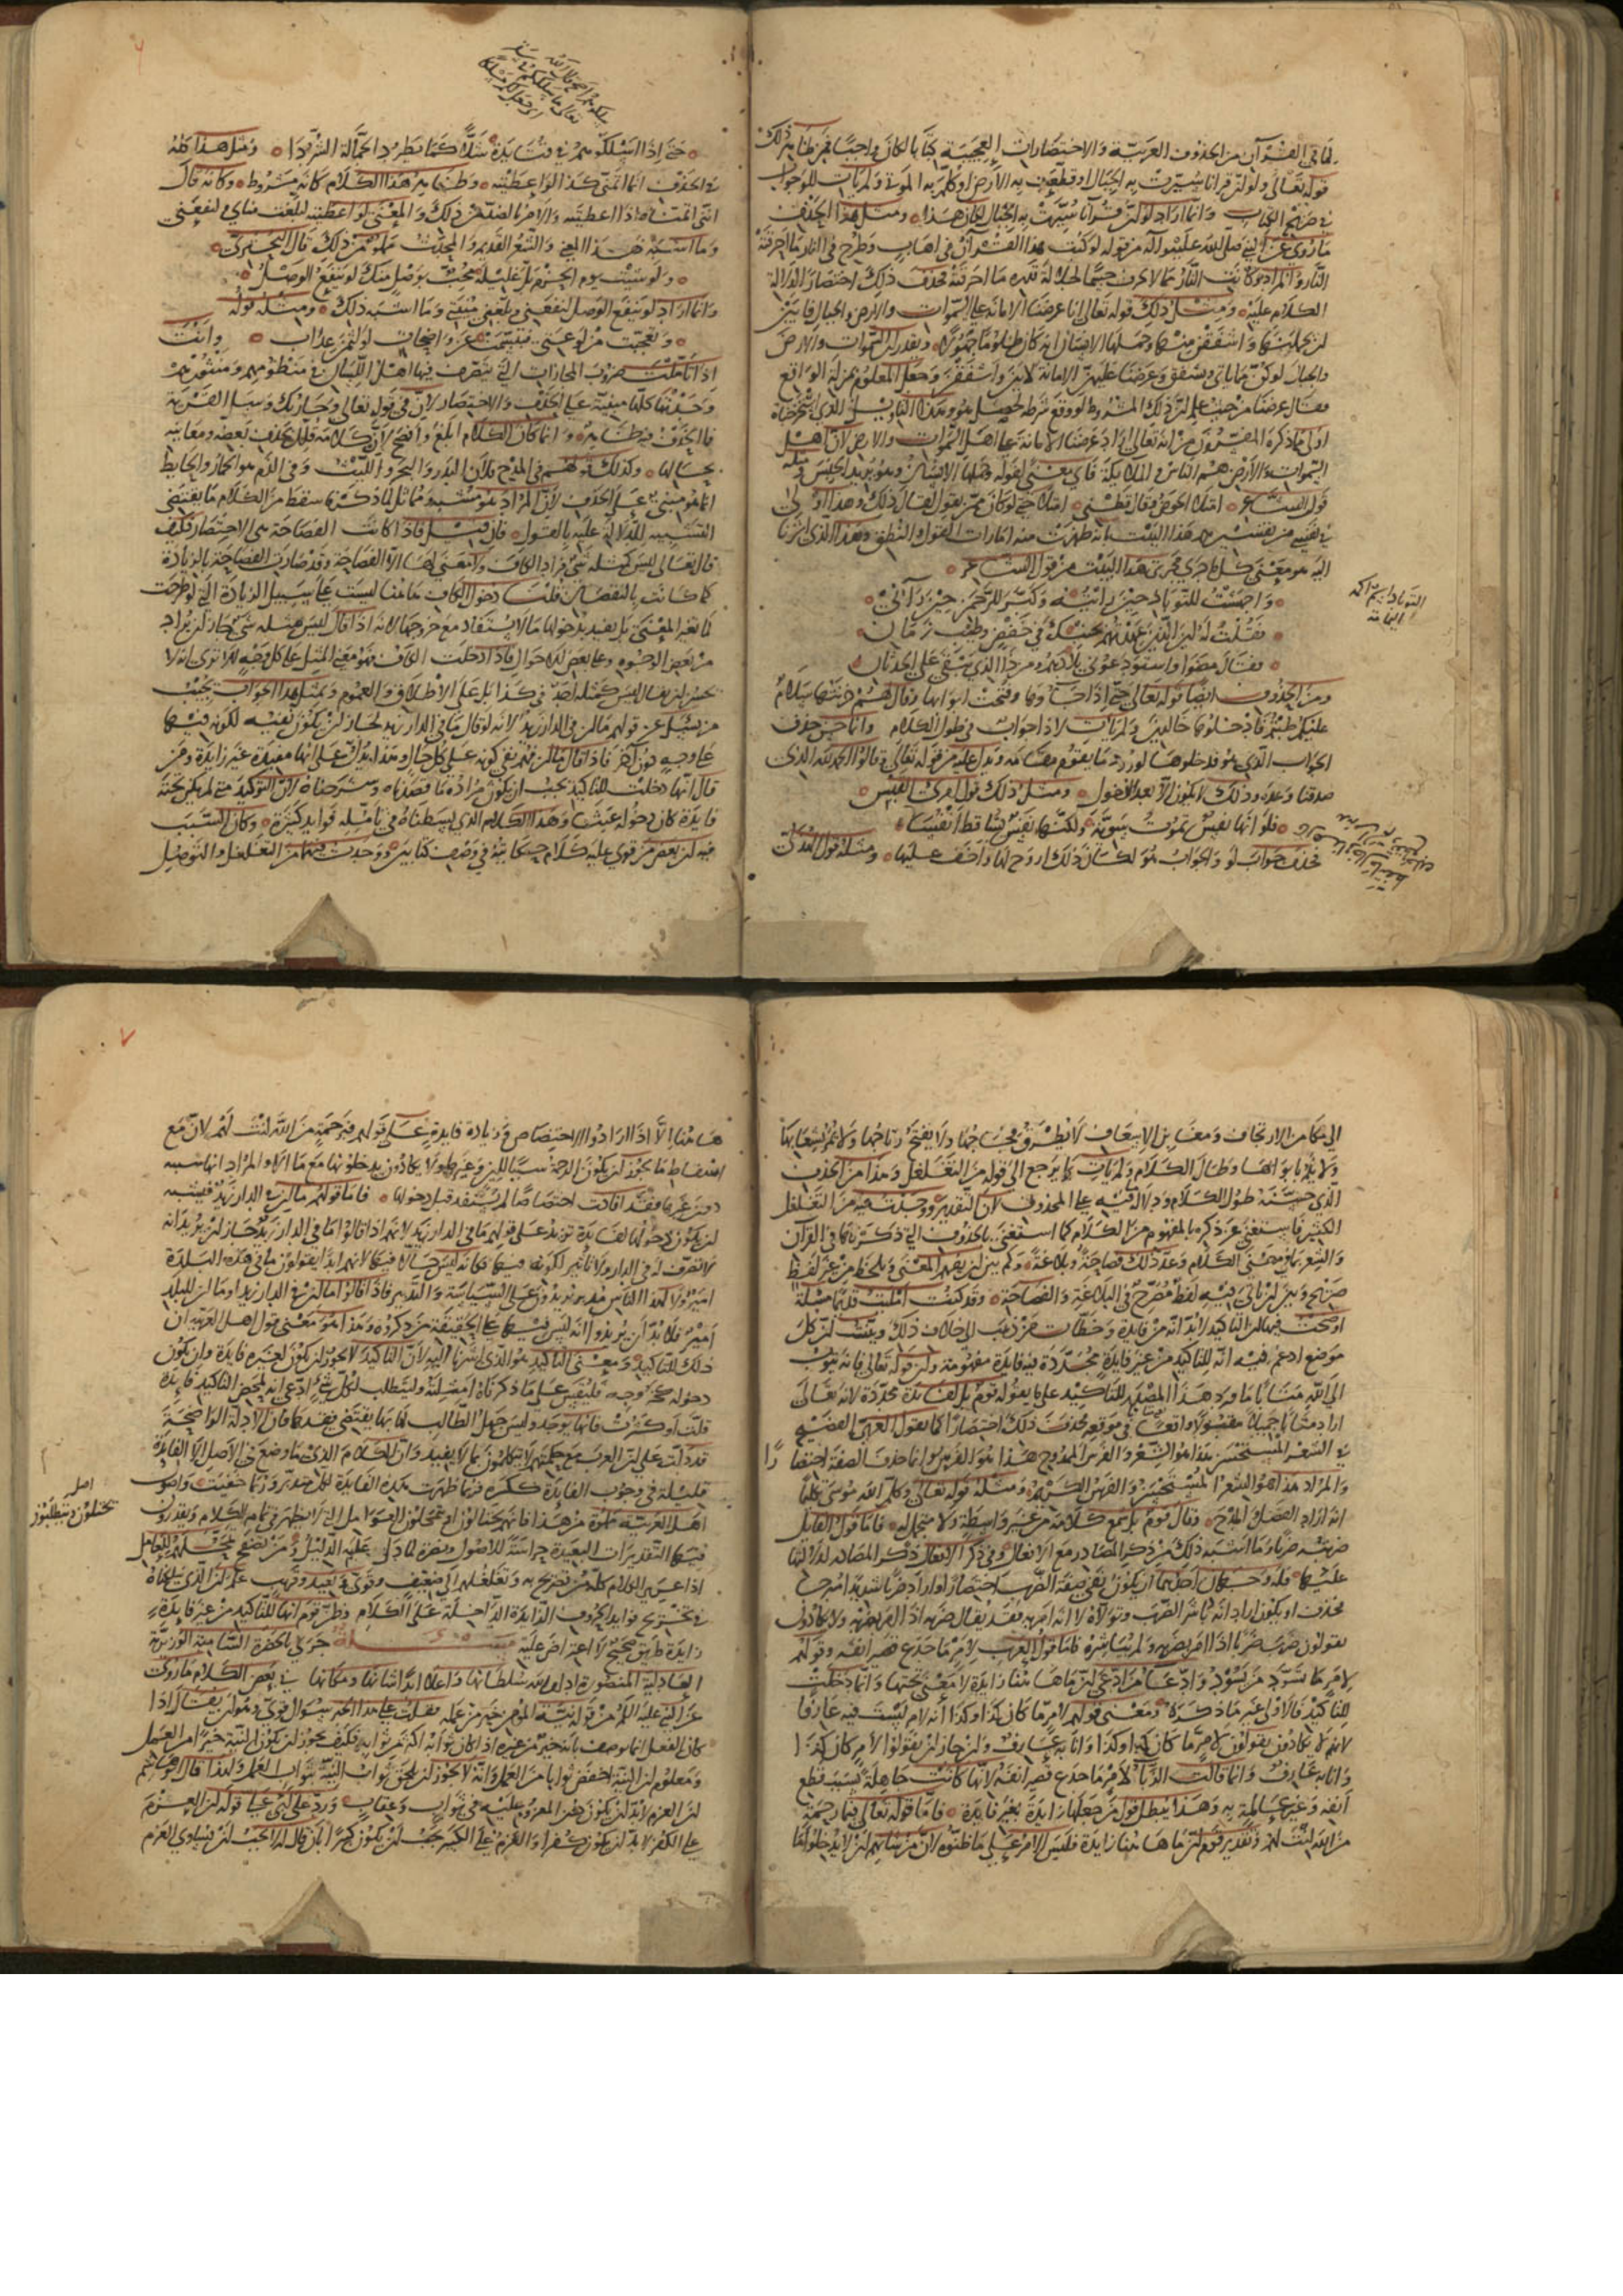 لما في القرآن من الحذوف العربية والاختصارات العجيبة كتابا لكان واجبا فمن ظاهر ذلك
قوله تعالى ولو أن قرآنا سيرت به الجبال أو قطعت به الأرض أو كلم به الموتى ولم يأت للو جواب
في صريح الكتاب وإنما أراد لو أن قرآنا سيرت به الجبال لكان هذا ومثل هذا الحذف
ما روي عن النبي صلى الله عليه وآله من قوله لو كتب هذا القرآن في إهاب وطرح في النار ما أحرقته
النار والمراد وكانت النار مما لا يحرق جسما لجلالة قدره ما أحرقته فحذف ذلك اختصارا لدلالة
الكلام عليه ومثل ذلك قوله تعالى إنا عرضنا الأمانة على السموات والأرض والجبال فأبين
أن يحملنها وأشفقن منها وحملها الإنسان إنه كان ظلوما جهولا وتقديره أن السموات والأرض
والجبال لو كن مما يأبى ويشفق وعرضنا عليهن الأمانة لأبين وأشفقن وجعل المعلوم بمنزلة الواقع
فقال عرضنا من حيث علم أن ذلك المشروط لو وقع شرطه لحصل هو وهذا التأويل الذي استخرجناه
أولى مما ذكره المفسرون من أنه تعالى أراد عرضنا الأمانة على أهل السموات والأرض لأن أهل
السموات والأرض هم الناس والملائكة فأي معنى لقوله وحملها الإنسان وهو يريد الجنس ومثله
قول الشاعر امتلأ الحوض وقال قطني امتلأ حتى لو كان ممن يقول لقال ذلك وهذا أولى
في نفسي من تفسيرهم هذا البيت بأنه ظهرت منه أمارات القول والنطق وهذا الذي أشرنا
إليه هو معنى كل ما جرى مجرى هذا البيت من قول الشاعر
وأجهشت للتوباد حين رأيته وكبر للرحمن حين رآني
فقلت له أين الذين عهدتهم بجنبك في خفض وطيب زمان
فقال مضوا واستودعوني بلادهم ومن ذا الذي يبقى على الحدثان
ومن الحذوف أيضا قوله تعالى حتى إذا جاؤها وفتحت أبوابها وقال لهم خزنتها سلام
عليكم طبتم فادخلوها خالدين ولم يأت لإذا جواب في طول الكلام وإنما حسن حذف
الجواب الذي هو قد دخلوها لورود ما يقوم مقامه ويدل عليه من قوله تعالى وقالوا الحمد لله الذي
صدقنا وعده وذلك لا يكون إلا بعد الدخول ومثل ذلك قول امرئ القيس
فلو أنها نفس تموت سوية ولكنها نفس تساقط أنفسا
فحذف جواب لو والجواب هو لكان ذلك أروح لها وأخف عليها ومثله قول الهذلي
التوباد اسم
حتى إذا أسلكوهم في قتائدة شلا كما تطرد الجمالة الشردا ومثل هذا كله
في الحذف إنما أتمنى كذا لو أعطيته وظاهر هذا الكلام كأنه مشروط وكأنه قال
إنني أتمناه إذا أعطيته والأمر بالضد من ذلك والمعنى لو أعطيته لبلغت مناي ولنفعني
وما أشبه هذا المعنى والشعر القديم والمحدث مملوء من ذلك قال البحتري
ولو شئت يوم الجزع بل غليله محب بوصل منك لو ينفع الوصل
وإنما أراد لو ينفع الوصل لنفعني وبلغني منيتي وما أشبه ذلك ومثله قوله
وأنت
إذا تأملت ضروب المجازات التي يتصرف فيها أهل اللسان في منظومهم ومنثورهم
وجدتها كلها مبنية على الحذف والاختصار لأن في قوله تعالى وجاء ربك وسل القرية
فالحذف فيه ظاهر وإنما كان الكلام أبلغ وأفصح لأن كلامه قلل بحذف بعضه ومعانيه
بحالها وكذلك قولهم في المدح فلان البدر والبحر والليث وفي الذم هو الحمار والحايط
إنما هو مبني على الحذف لأن المراد هو مشبه مماثل لما ذكرنا سقط من الكلام ما يقتضي
التشبيه للدلالة عليه بالعقول فإن قيل فإذا كانت الفصاحة هي الاختصار فكيف
قال تعالى ليس كمثله شيء فزاد الكاف ولا معنى لها إلا الفصاحة وقد صارت الفصاحة بالزيادة
كما كانت بالنقصان قلنا دخول الكاف هاهنا ليست على سبيل الزيادة التي لو طرحت
لما تغير المعنى بل يفيد بدخولها ما لا يستفاد مع خروجها لأنه إذا قال ليس مثله شيء جاز أن يراد
من بعض الوجوه وعلى بعض الأحوال فإذا دخلت الكاف فهو معنى المثل على كل وجه ألا ترى أنه لا
يحسن أن يقال ليس كمثله أحد في كذا بل على الإطلاق والعموم وبمثل هذا الجواب نجيب
من يسئل عن قولهم ما إن في الدار زيد لأنه لو قال ما في الدار زيد لجاز أن يكون نفيه لكونه فيها
على وجه دون آخر فإذا قال ما إن فهم نفي كونه على كل حال وهذا يدل على أنها مفيدة غير زايدة ومن
قال إنها دخلت للتأكيد يجب أن يكون مراده ما قصدناه وشرحناه لأن التوكيد متى لم يكن تحته
فايدة كان دخوله عبثا وهذا الكلام الذي بسطناه في تأمله فوايد كثيرة وكان السبب
فيه أن بعض من قوي عليه كلام حكاية في وصف كتابين ووجدت فيهما من التغلغل والتوصل
إلى مكامن الارتجاف ومغابن الإسعاف لا يطرق فجاجها ولا يفتح رتاجها ولا تعم شعابها
ولا بوابها وطال الكلام ولم يأت بما يرجع إلى قوله من التغلغل وهذا من الحذف
الذي حسنه طول الكلام ودلالة فيه على المحذوف لأن التقدير ووجدت فيه من التغلغل
الكثير فاستغني عن ذكره بالمفهوم من الكلام كما استغني بالحذوف التي ذكرناها في القرآن
والشعر بأن معنى الكلام وعد ذلك فصاحة وبلاغة وكم بين أن يفهم المعنى ويلحظ من غير لفظ
صريح وبين أن يأتي فيه لفظ مصرح في البلاغة والفصاحة وقد كنت أمليت قديما مسئلة
أوضحت فيها أن التأكيد لا بد أنه من فايدة وخطأت من ذهب إلى خلاف ذلك وبينت أن كل
موضع ادعي فيه أنه للتأكيد من غير فايدة مجددة فيه فايدة مفهومة وأن قوله تعالى فإنه يتوب
إلى الله متابا ما ورد هذا المصدر للتأكيد على ما يقوله قوم بل لفايدة مجددة لأنه تعالى
أراد متابا جميلا مقبولا واقعا في موقعه فحذف ذلك اختصارا كما يقول العربي الفصيح
في الشعر المستحسن هذا هو الشعر والفرس الممدوح هذا هو الفرس وإنما حذف الصفة اختصارا
والمراد هذا هو الشعر المستحسن والفرس الكريم ومثله قوله تعالى وكلم الله موسى تكليما
أنه أراد الفضل والمدح وقال قوم بل سمع كلامه من غير واسطة ولا متحمل له فأما قول القايل
ضربته ضربا وما أشبه ذلك من ذكر المصادر مع الأفعال وفي ذكر الأفعال ذكر المصادر لدلالتها
محذوف أو يكون أراد أنه باشر الضرب وتولاه لا أنه أمر به فقد يقال ضربه إذا أمر بضربه ولا يكادون
يقولون ضربت ضربا إذا أمر بضربه ولم يباشره فأما قول العرب لأمر ما جدع قصير أنفه وقولهم
لأمر ما يسود من يسود وادعاء من ادعى أن ما هاهنا زايدة لا معنى تحتها وإنما دخلت
للتأكيد فالأولى غير ما ذكره ومعنى قولهم لأمر ما كان كذا وكذا أنه لأمر لست فيه عارفا
لأنهم لا يكادون يقولون لأمر ما كان كذا وكذا وأنا به عارف وإن جاز أن يقولوا لأمر كان كذا
وأنا به عارف وإنما قالت الزباء لأمر ما جدع قصير أنفه لأنها كانت جاهلة بسبب قطع
أنفه وغير عالمة به وهذا يبطل قول من جعلها زايدة بغير فايدة فأما قوله تعالى فبما رحمة
من الله لنت لهم وتقدير قوم أن ما هاهنا زايدة فليس الأمر على ما ظنوه لأن من شأنهم أن لا يدخلوا ما
هاهنا إلا إذا أرادوا الاختصاص وزيادة فايدة على قولهم فبرحمة من الله لنت لهم لأن مع
إسقاط ما يجوز أن يكون الرحمة سببا للين وغيرها ولا يكادون يدخلونها مع ما إلا والمراد أنها سببه
دون غيرها فقد أفادت اختصاصا لم يستفد قبل دخولها فأما قولهم ما إن في الدار زيد فيشبه
أن يكون دخولها لفايدة تزيد على قولهم ما في الدار زيد لأنهم إذا قالوا ما في الدار زيد جاز أن يريد أنه
لا تصرف له في الدار ولا تأثير لكونه فيها فكأنه ليس حالا فيها لأنهم أبدا يقولون ما في هذه البلدة
أمير ولا لهذا الناس مدبر يريدون على السياسة والتدبير فإذا قالوا ما إن في الدار زيد أو ما إن للبلد
أمير فلا بد أن يريدوا أنه ليس فيها على الحقيقة من ذكروه وهذا هو معنى قول أهل العربية إن
ذلك للتأكيد ومعنى التأكيد هو الذي أشرنا إليه لأن التأكيد لا يجوز أن يكون لغير فايدة وأن يكون
دخوله كخروجه فليقس على ما ذكرناه أمثلته وليتطلب لكل شيء ادعي أنه لمحض التأكيد فايدة
قلت أو كثرت فإنها يوجد وليس جهل الطالب لما بها يقتضي فقدها فإن الأدلة الواضحة
قد دلت على أن العرب مع حكمتهم لا يتكلمون بما لا يفيد وأن الكلام الذي ما وضع في الأصل إلا لفايدة
قليله في وجوب الفايدة ككثيره فربما ظهرت هذه الفايدة لكل متدبر وربما خفيت
أصل
يتمحلون ويتطلبون
زايدة طريق صحيح لا اعتراض عليه مسئلة جرى بالحضرة السامية الوزيرية
العادلية المنصورة أدام الله سلطانها وأعلى أبدا شأنها ومكانها في بعض الكلام ما روي
عن النبي عليه السلام من قوله نية المؤمن خير من عمله فقلت على هذا الخبر سؤال قوي وهو أن يقال إذا
كان الفعل إنما يوصف بأنه خير من غيره إذا كان ثوابه أكثر من ثوابه فكيف يجوز أن يكون النية خيرا من العمل
ومعلوم أن النية أخفض ثوابا من العمل وأنه لا يجوز أن يلحق ثواب النية بثواب العمل ولهذا قال أبو هاشم
إن العزم لا بد أن يكون دون المعزوم عليه في ثواب وعقاب ورد على أبي علي قوله إن العزم
على الكفر لا بد أن يكون كفرا والعزم على الكبير يجب أن يكون كبيرا بأن قال له لا يجب أن يساوي العزم